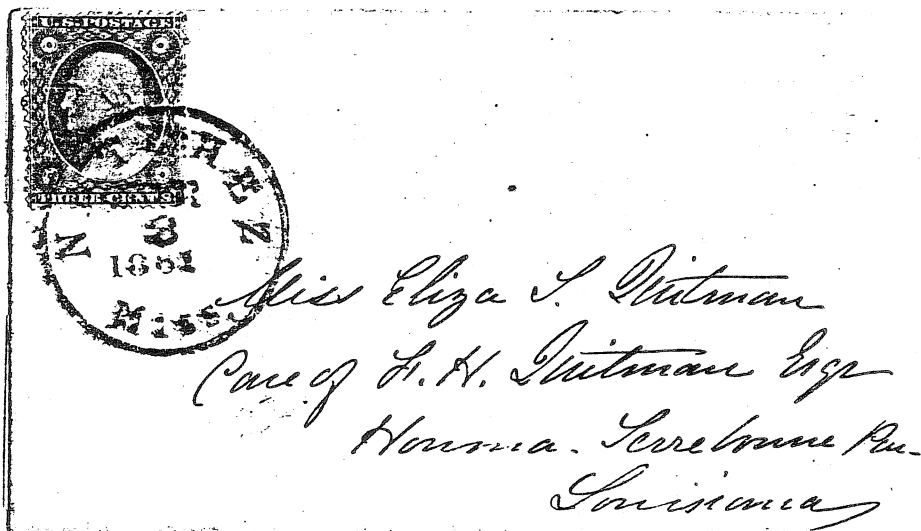 U.S. POSTAGE
THREE CENTS
NATCHEZ
3
Miss.
Miss Eliza T. Quitman
Care of F. H. Quitman Esqr
Houma. Terrebonne Par-
Louisiana